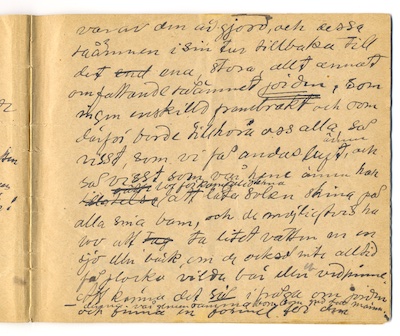 varav den är gjord, och dessa
råämnen i sin tur tillbaka till
det ena, stora, allt annat
omfattande råämnet jorden, som
ingen enskild frambrakt och som
därför borde tillhöra oss alla så
visst, som vi få andas luft, och
så visst som vår herre ännu har
att låta solen skina på
alla sina barn, och de möjligtvis ha
lov att ta litet vatten ur en
sjö eller bäck om de orka inte alltid
få plocka vilda bär eller
Att känna det så i fråga om jorden
och finna en formel för